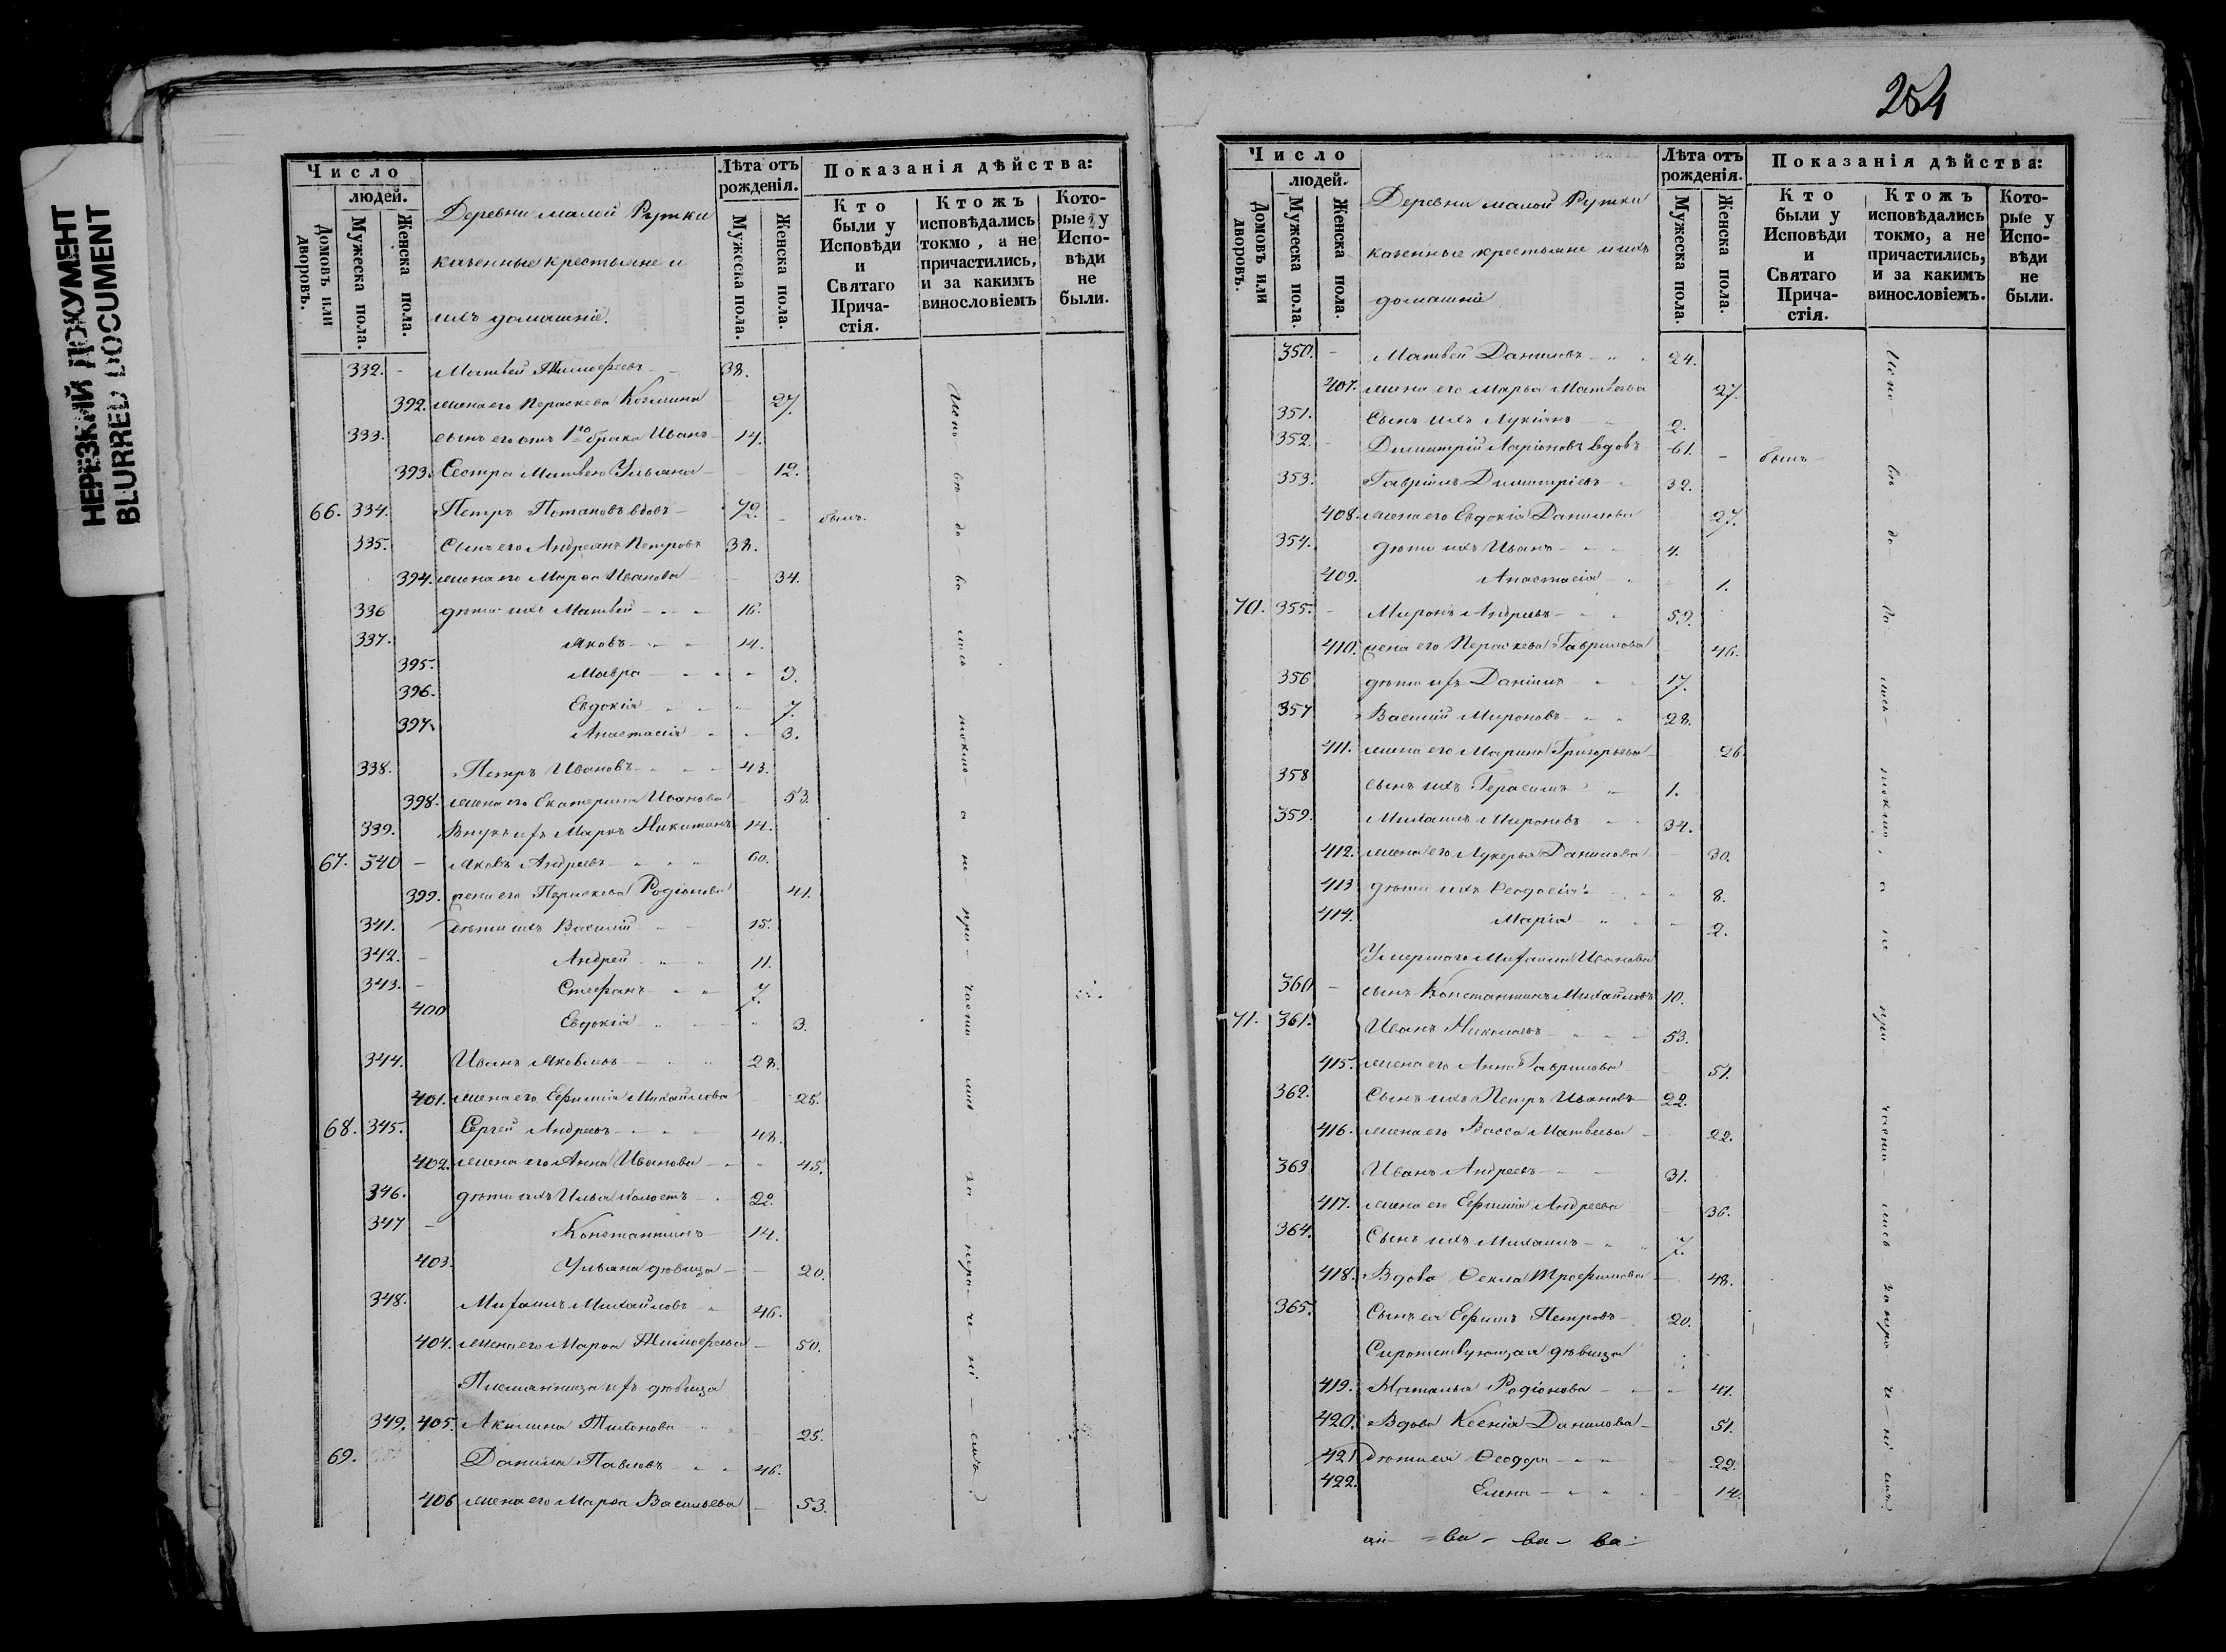 НЕРЕЗКИЙ ДОКУМЕНТ
BLURRED DOCUMENT
Число
людей.
Домовъ или дворовъ.
Мужеска пола.
Женска пола.
Деревни малой Рутки
казенные крестьяне и
ихъ домашніе.
Лѣта отъ рожденія.
Мужеска пола.
Женска пола.
Показанія дѣйства:
Кто были у Исповѣди и Святаго Прича-стія.
Ктожъ исповѣдались токмо, а не причастились, и за какимъ винословіемъ
Кото-рые у Испо-вѣди не были.
332. - Матвей Тимофеевъ 38.
392. жена его Параскева Козмина 27.
333. сынъ его отъ 1го брака Иванъ 14.
393. Сестра Матвею Ульяна 12.
66. 334. Петръ Потаповъ вдовъ 72. былъ.
335. Сынъ его Андреянъ Петровъ 38.
394. жена его Марѳа Иванова 34.
336 дѣти ихъ Матвей 16.
337. Яковъ 14.
395. Мавра 9.
396. Евдокія 7.
397. Анастасія 3.
338. Петръ Ивановъ 43.
398. жена его Екатерина Иванова 53.
339. Внукъ ихъ Маркъ Никитинъ 14.
67. 340 - Яковъ Андреевъ 60.
399. жена его Параскева Родіонова 41.
341. дѣти ихъ Василій 15.
342. - Андрей 11.
343. - Стефанъ 7.
400 Евдокія 3.
344. Иванъ Яковлевъ 28.
401. жена его Ефимія Михайлова 25.
68. 345. Сергей Андреевъ 48.
402. жена его Анна Иванова 45.
346. дѣти ихъ Илья холостъ 22.
347 - Константинъ 14.
403. Ульяна дѣвица 20.
348. Михаилъ Михайловъ 46.
404. жена его Марѳа Тимофеева 50.
Племянница ихъ дѣвица
349. 405. Акилина Тихонова 25.
69. Данила Павловъ 46.
406 жена его Марѳа Васильева 53.
Испо- вѣ- до- ва- лись токмо а не при- части- лись за- нера- че- ні- емъ.
254
Число
людей.
Домовъ или дворовъ.
Мужеска пола.
Женска пола.
Деревни малой Рутки
казенные крестьяне и ихъ
домашніе
Лѣта отъ рожденія.
Мужеска пола.
Женска пола.
Показанія дѣйства:
Кто были у Исповѣди и Святаго Прича-стія.
Ктожъ исповѣдались токмо, а не причастились, и за какимъ винословіемъ.
Кото-рые у Испо-вѣди не были.
350. - Матвей Даниловъ 24.
407. жена его Марья Матвеева 27.
351. Сынъ ихъ Лукіянъ 2.
352. - Димитрій Ларіоновъ вдовъ 61. - былъ
353. Гавріилъ Димитріевъ 32.
408. жена его Евдокія Данилова 27.
354. дѣти ихъ Иванъ 4.
409. Анастасія 1.
70. 355. - Миронъ Андреевъ 59.
410. жена его Параскева Гаврилова 46.
356 дѣти ихъ Даніилъ 17.
357 Василій Мироновъ 28.
411. жена его Марина Григорьева 26
358 сынъ ихъ Герасимъ 1.
359. Михаилъ Мироновъ 34.
412. жена его Лукерья Данилова 30.
413. дѣти ихъ Ѳеодосія 8.
414. Марія 2.
Умершаго Михаила Иванова
360 - сынъ Константинъ Михайловъ 10.
71. 361. Иванъ Николаевъ 53.
415. жена его Анна Гаврилова 51.
362. Сынъ ихъ Петръ Ивановъ 22.
416. жена его Васса Матвеева 22.
363 Иванъ Андреевъ 31.
417. жена его Ефимія Андреева 36.
364. Сынъ ихъ Михаилъ 7.
418. Вдова Ѳекла Трофимова 48.
365. Сынъ ея Ефимъ Петровъ 20.
Сиротствующая дѣвица
419. Наталья Родіонова 41.
420. Вдова Ксенія Данилова 51.
421 Дѣти ея Ѳеодора 22.
422. Елена 14.
Испо- вѣ- до- ва- лись токмо, а не при- части- лись за нера- че- ні- емъ.
- ва - ва - ва -